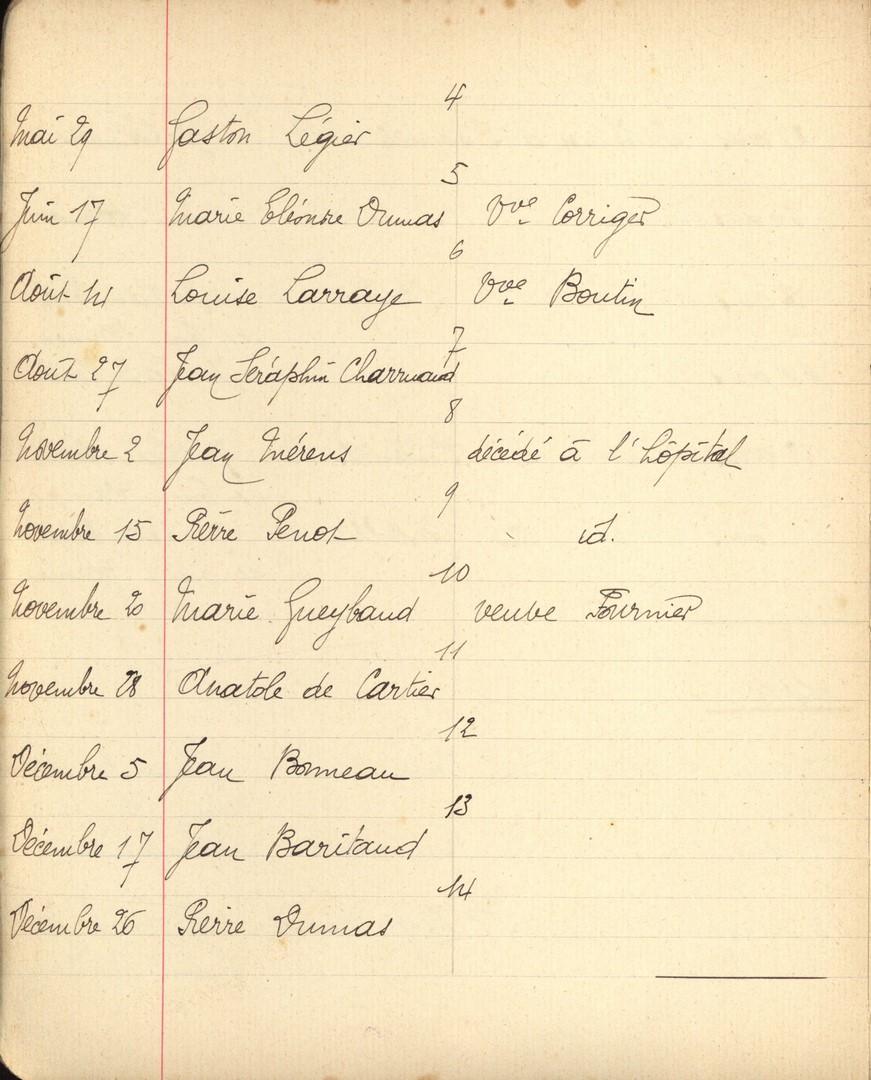 4
Mai 29 Gaston Légier
5
Juin 17 Marie Eléonore Dumas Vve Corriger
6
Août 14 Louise Larraye Vve Boutin
7
Août 27 Jean Séraphin Charruaud
8
Novembre 2 Jean Mérens décédé à l'hôpital
9
Novembre 15 Pierre Penot id.
10
Novembre 20 Marie Gueybaud veuve Fournier
11
Novembre 28 Anatole de Cartier
12
Décembre 5 Jean Bonneau
13
Décembre 17 Jean Baritaud
14
Décembre 26 Pierre Dumas